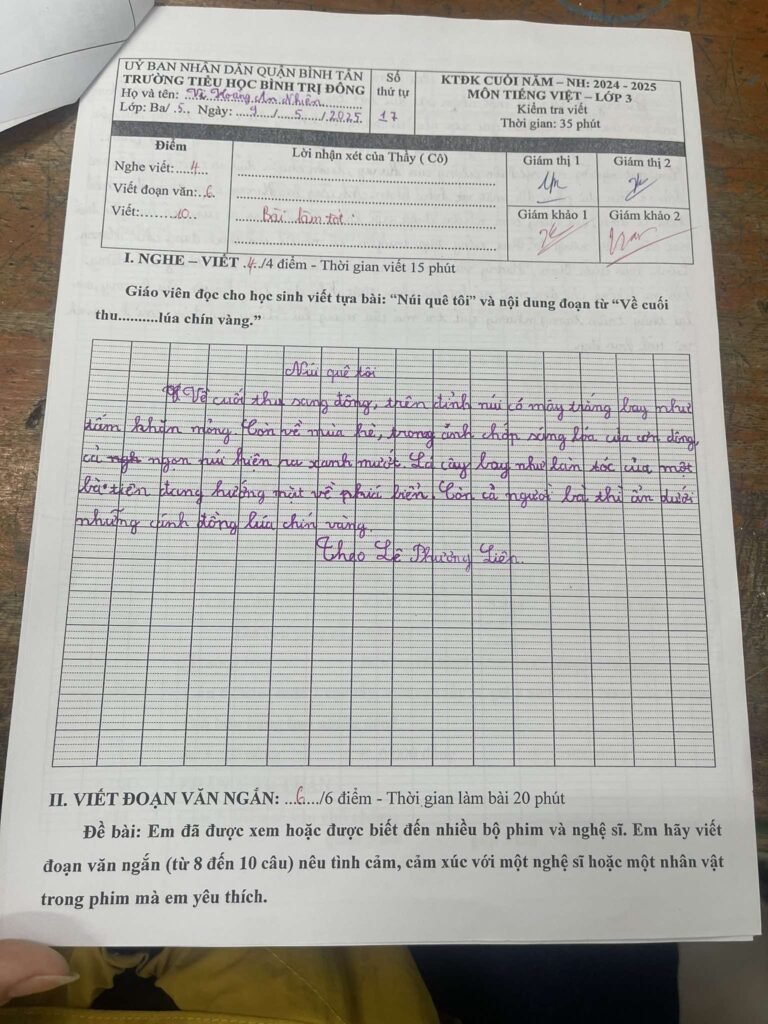 UỶ BAN NHÂN DÂN QUẬN BÌNH TÂN
TRƯỜNG TIỂU HỌC BÌNH TRỊ ĐÔNG
Họ và tên: Võ Hoàng An Nhiên
Lớp: Ba/ 5.. Ngày: 9 / 5 / 2025
Số thứ tự
17
KTĐK CUỐI NĂM – NH: 2024 - 2025
MÔN TIẾNG VIỆT – LỚP 3
Kiểm tra viết
Thời gian: 35 phút
Điểm
Nghe viết: 4
Viết đoạn văn: 6
Viết: 10
Lời nhận xét của Thầy ( Cô)
Bài làm tốt.
Giám thị 1
Giám thị 2
Giám khảo 1
Giám khảo 2
I. NGHE – VIẾT .4./4 điểm - Thời gian viết 15 phút
Giáo viên đọc cho học sinh viết tựa bài: “Núi quê tôi” và nội dung đoạn từ “Về cuối
thu..........lúa chín vàng.”
Núi quê tôi
Về cuối thu sang đông, trên đỉnh núi có mây trắng bay như
tấm khăn mỏng. Còn về mùa hè, trong ánh chớp sáng lóa của cơn dông,
cả ngọn núi hiện ra xanh mướt. Lá cây bay như làn tóc của một
bà tiên đang hướng mặt về phía biển. Còn cả người bà thì ẩn dưới
những cánh đồng lúa chín vàng.
Theo Lê Phương Liên.
II. VIẾT ĐOẠN VĂN NGẮN: ...6.../6 điểm - Thời gian làm bài 20 phút
Đề bài: Em đã được xem hoặc được biết đến nhiều bộ phim và nghệ sĩ. Em hãy viết
đoạn văn ngắn (từ 8 đến 10 câu) nêu tình cảm, cảm xúc với một nghệ sĩ hoặc một nhân vật
trong phim mà em yêu thích.